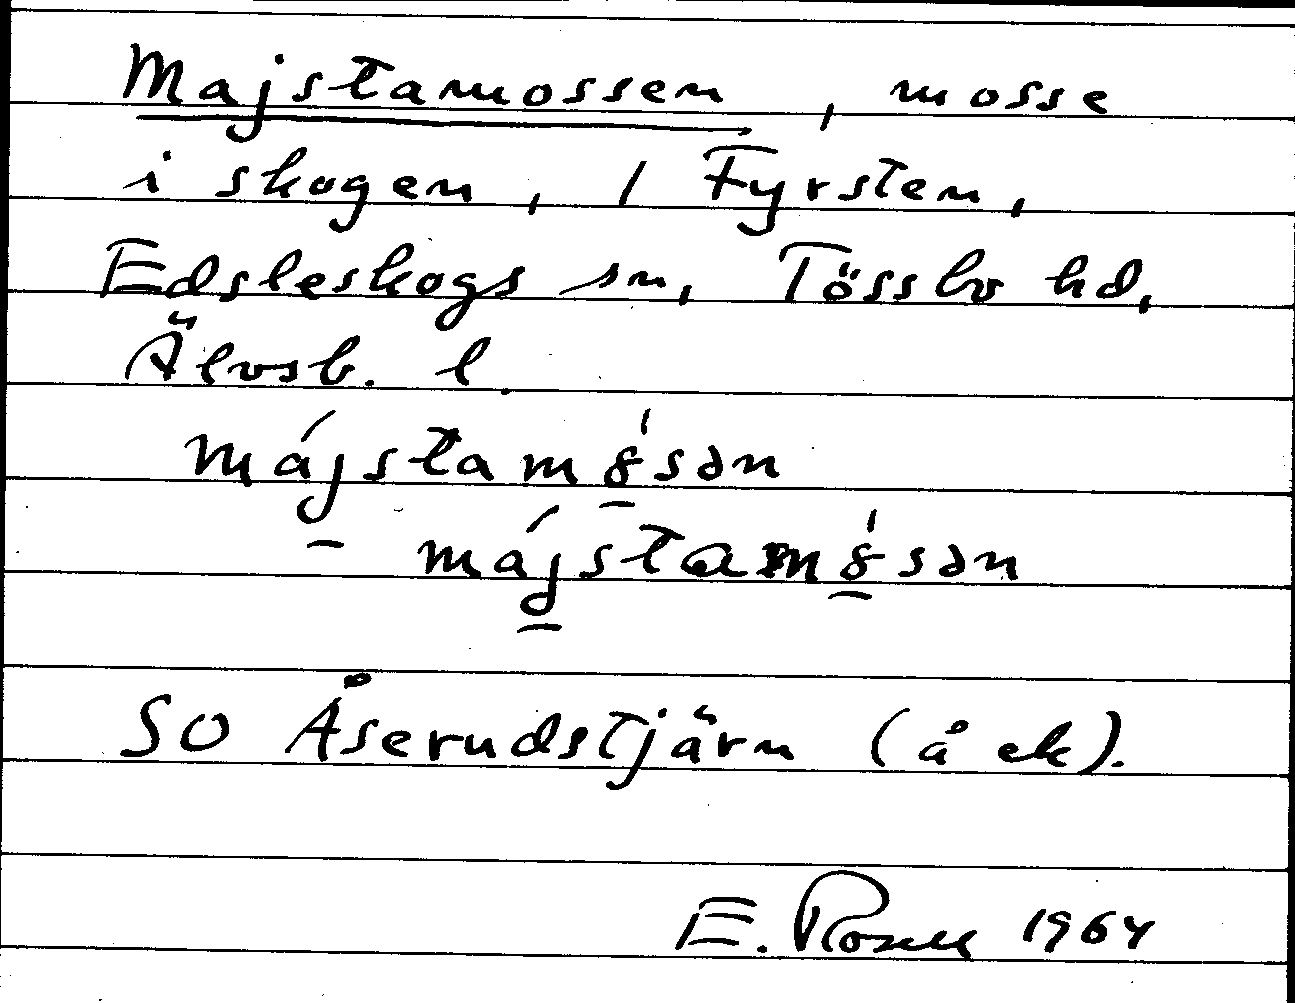 Majstamossen, mosse
i skogen, 1 Fyrsten,
Edsleskogs sn, Tössbo hd,
Älvsb. l.
májstamo̱̍sən
- májstamo̱̍sən
SO Åserudstjärn (å ek).
E. 1964